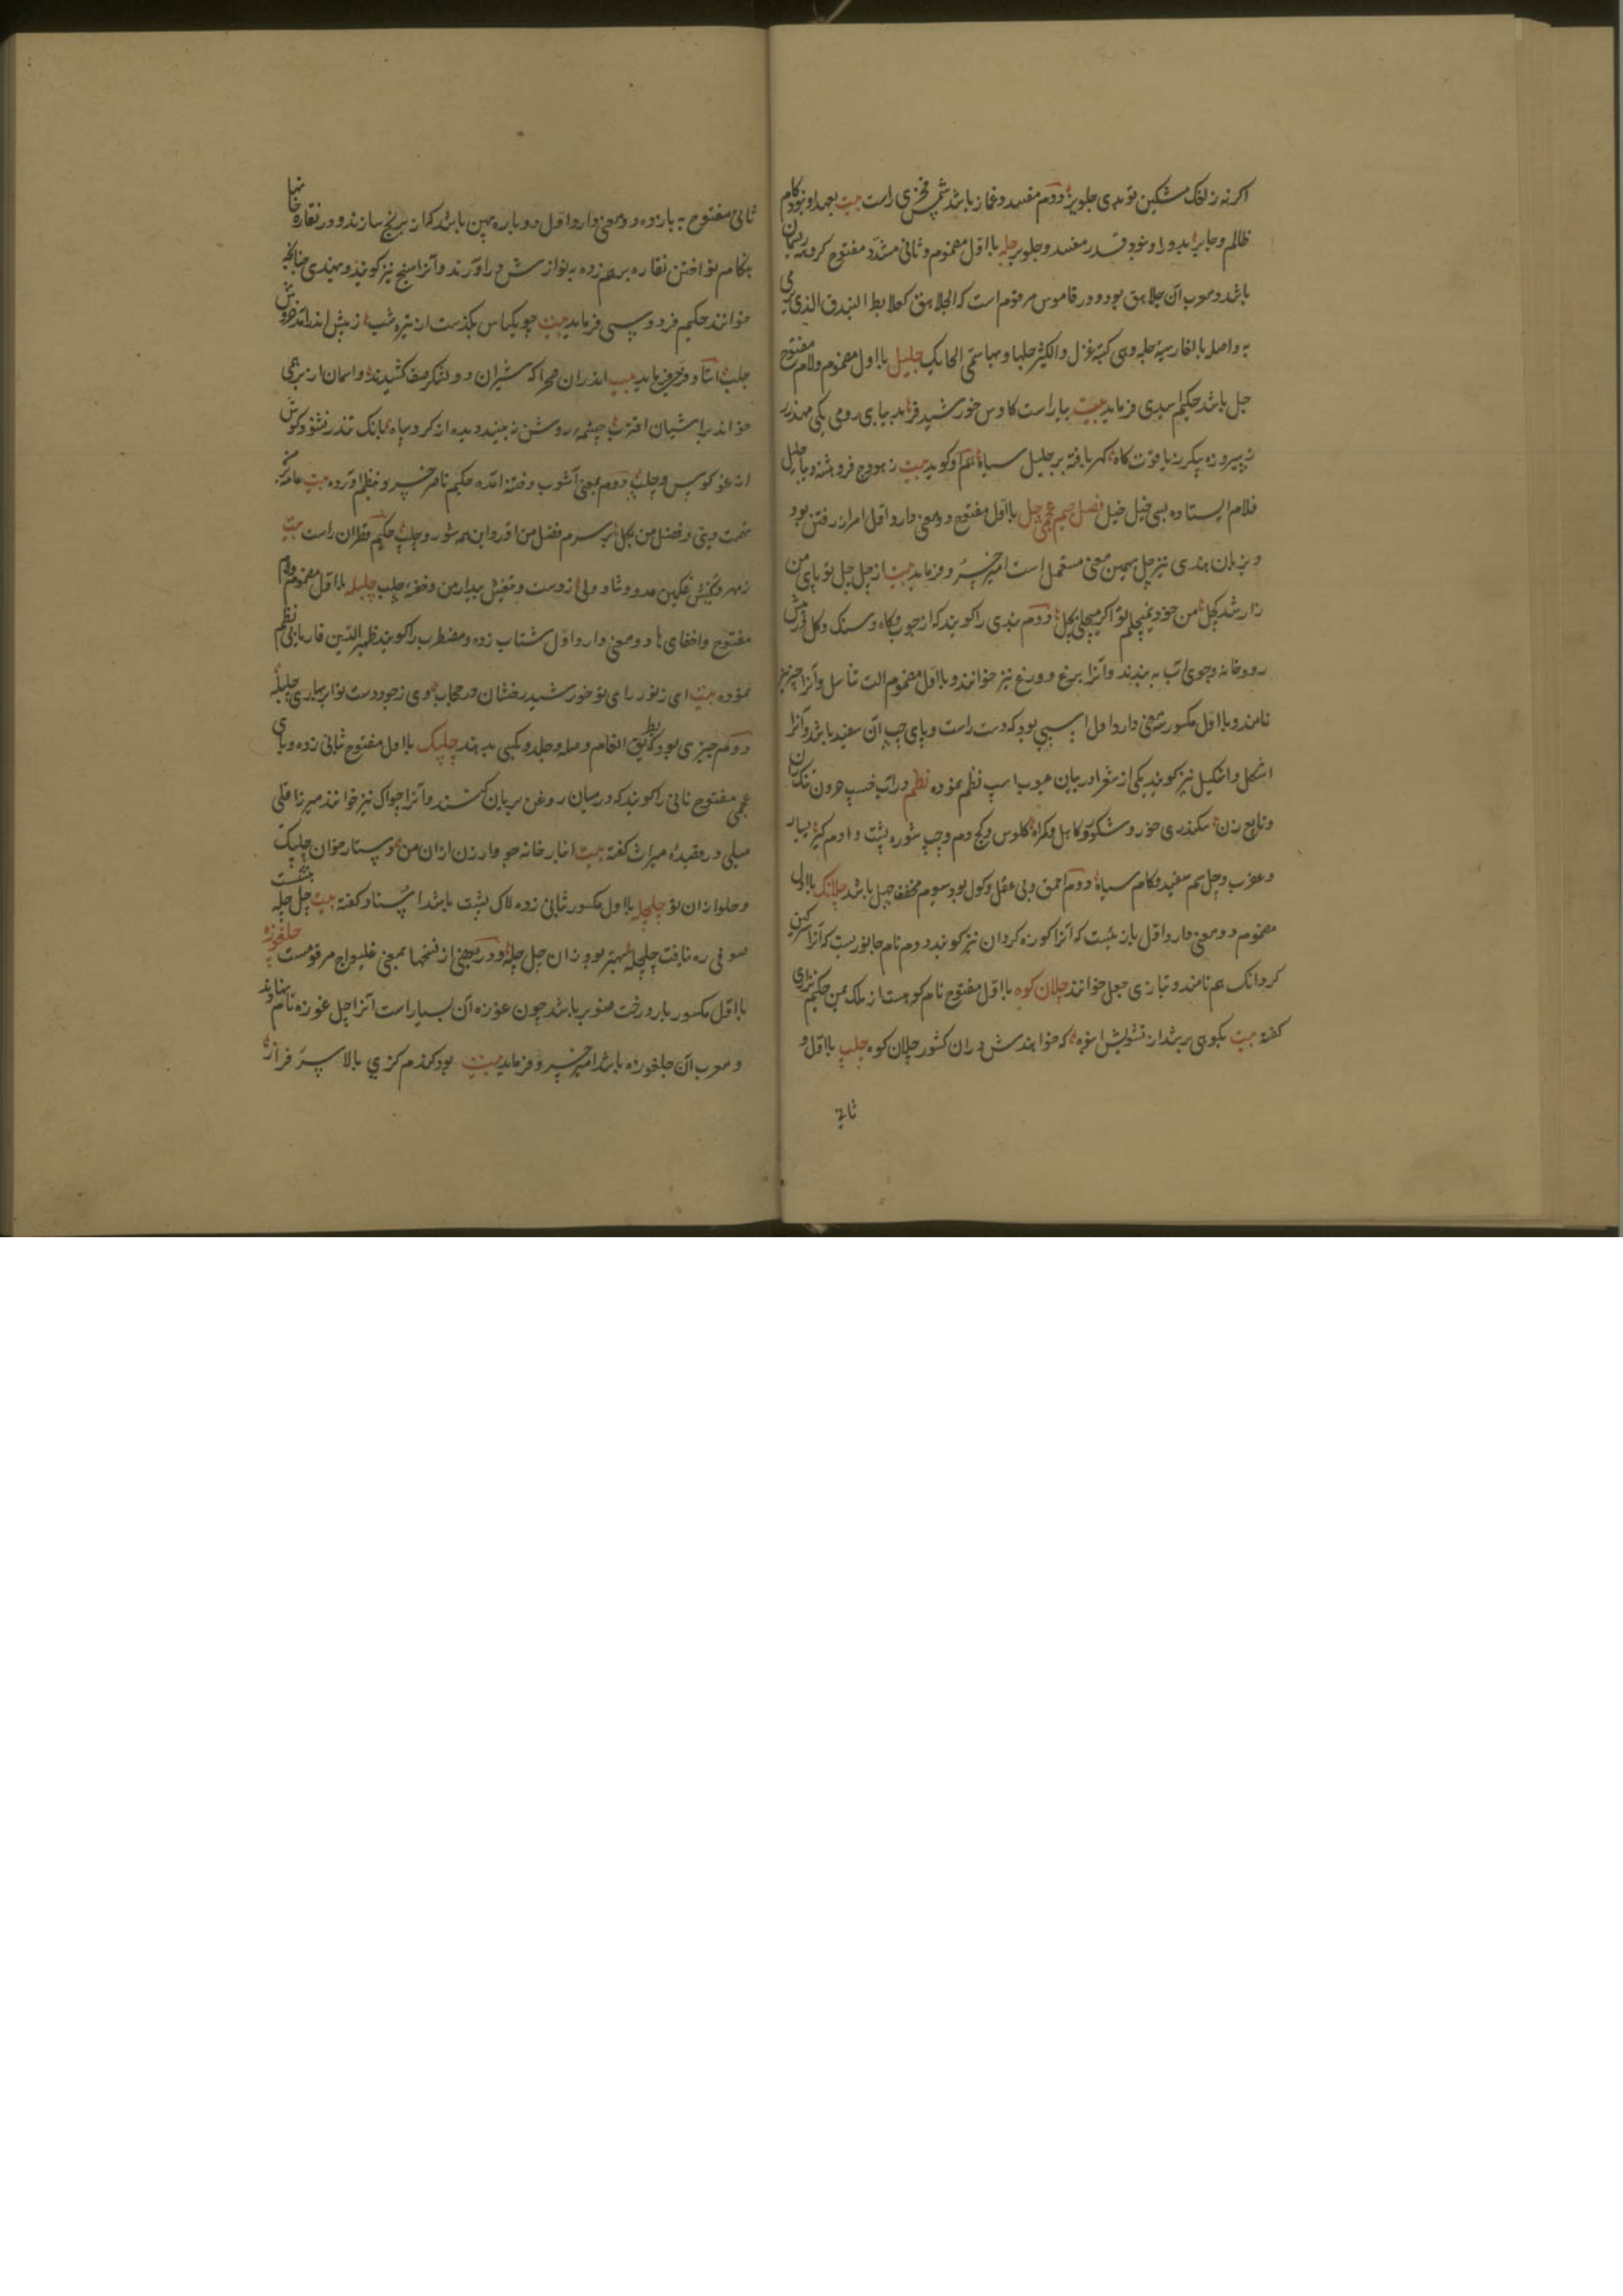 اگر نه زلفک مشکین تو بدی جلویز دوم مفسد و غماز باشد شمس فخری راست بیت بعهد او نبود کام
ظالم و جابر بدور او نبود قدر مفسد و جلویز جله با اول مضموم و ثانی مشدد مفتوح کروهه ریسمان
باشد و معرب آن جلاهق بود و در قاموس مرقوم است که الجلاهق کعلابط البندق الذی یرمی
به و اصله بالفارسیة جله وهی کبة غزل والکثیر جلها و بها سمی الحایک جلیل با اول مضموم و لام مفتوح
جل باشد حکیم اسدی فرماید بیت بیاراست کاوس خورشید فر بدیبای رومی یکی مهد زر
ز پیروزه پیکر ز یاقوت گاه گهر بافته بر جلیل سیاه هم او گوید بیت ز هودج فروهشته دیبا جلیل
غلام ایستاده بسی خیل خیل فصل جیم عجمی چل با اول مفتوح دو معنی دارد اول امر از رفتن بود
و بزبان هندی نیز چل بهمین معنی مستعمل است امیر خسرو فرماید بیت از چل چل تو پای من
زار شد کچل من خود نمیچلم تو اگر میچلی بچل دوم بندی را گویند که از چوب و کاه و سنگ و گل در پیش
رودخانه و جوی آب به بندند و آنرا برغ و ورغ نیز خوانند و با اول مضموم آلت تناسل و آنرا چر نیز
نامند و با اول مکسور سه معنی دارد اول اسپی بود که دست راست و پای چپ آن سفید باشد و آنرا
اشکل و اشکیل نیز گویند یکی از شعرا در بیان عیوب اسپ نظم نموده نظم در آب خسپ حرون تنگ ران
و تابع زن سکندری خور و شکور و کاهل و گمراه کلوس و کج دم و چپ شوره پشت و آدم گیر یسار
و عقرب و چل سم سفید و کام سیاه دوم احمق و بی عقل و کول بود سیوم مخفف چهل باشد چلانک با اول
مضموم دو معنی دارد اول بازیست که آنرا کوزه گردان نیز گویند دوم نام جانوریست که آنرا سرگین
گردانک هم نامند و بتازی جعل خوانند چلان کوه با اول مفتوح نام کوهست از ملک یمن حکیم نزاری
گفته بیت بکوهی بر شد از تشویش انبوه که خوانندش در آن کشور چلان کوه چلب با اول و
ثانی
ثانی مفتوح به بازده دو معنی دارد اول دو باره پهن باشد که از برنج سازند و در نقاره خانها
هنگام نواختن نقاره برهم زده به نوازش در آورند و آنرا سنج نیز گویند و بهندی جانجه
خوانند حکیم فردوسی فرماید بیت چو یکپاس بگذشت از تیره شب ز پیش اندر آمد خروش
چلب استاد فرخی فرماید بیت اندران صحرا که شیران دو لشکر صف کشیدند و آسمان از بر همی
خواند بر ایشان اقترب چشمهٔ روشن نه بیند دیده از گرد سپاه بانگ تندر نشنود گوش
از غو کوس و چلب دوم بمعنی آشوب و فتنه آمده حکیم ناصر خسرو بنظم آورده بیت عامه بر
تهمت دینی و فضل من بکل بر سرم فضل من آورد این همه شور و چلب حکیم قطران راست بیت
ز مهر و کینش غمگین عدو و شاد ولی ز دست و تیغش بیدار من و خفته چلب چلبله با اول مضموم و لام
مفتوح و اخفای ها دو معنی دارد اول شتاب زده و مضطرب را گویند ظهیر الدین فاریابی نظم
نموده بیت ای ز نور رای تو خورشید رخشان در حجاب وی ز جود دست تو ابر بهاری چلبله
دوم چیزی بود که بطریق انعام و صله و جلدو بکسی بدهند چلپک با اول مفتوح ثانی زده و بای
عجمی مفتوح نانی را گویند که در میان روغن بریان کنند و آنرا چواک نیز خوانند میرزا قلی
میلی در قصیدهٔ میراث گفته بیت انبار خانه جو و ارزن از آن من دستار خوان چلپک
و حلوا از آن تو چلچله با اول مکسور ثانی زده لاک پشت باشد استاد گفته بیت چل چله بنشست
صوفی ره نیافت چلچله بهتر بود زان چل چله و در بعضی از نسخها بمعنی غلیواج مرقومست چلغوزه
با اول مکسور بار درخت صنوبر باشد چون غوزه آن بسیار است آنرا چل غوزه نام نهادند
و معرب آن جلغوزه باشد امیر خسرو فرماید بیت بود کندم گزی بالا سر فراز